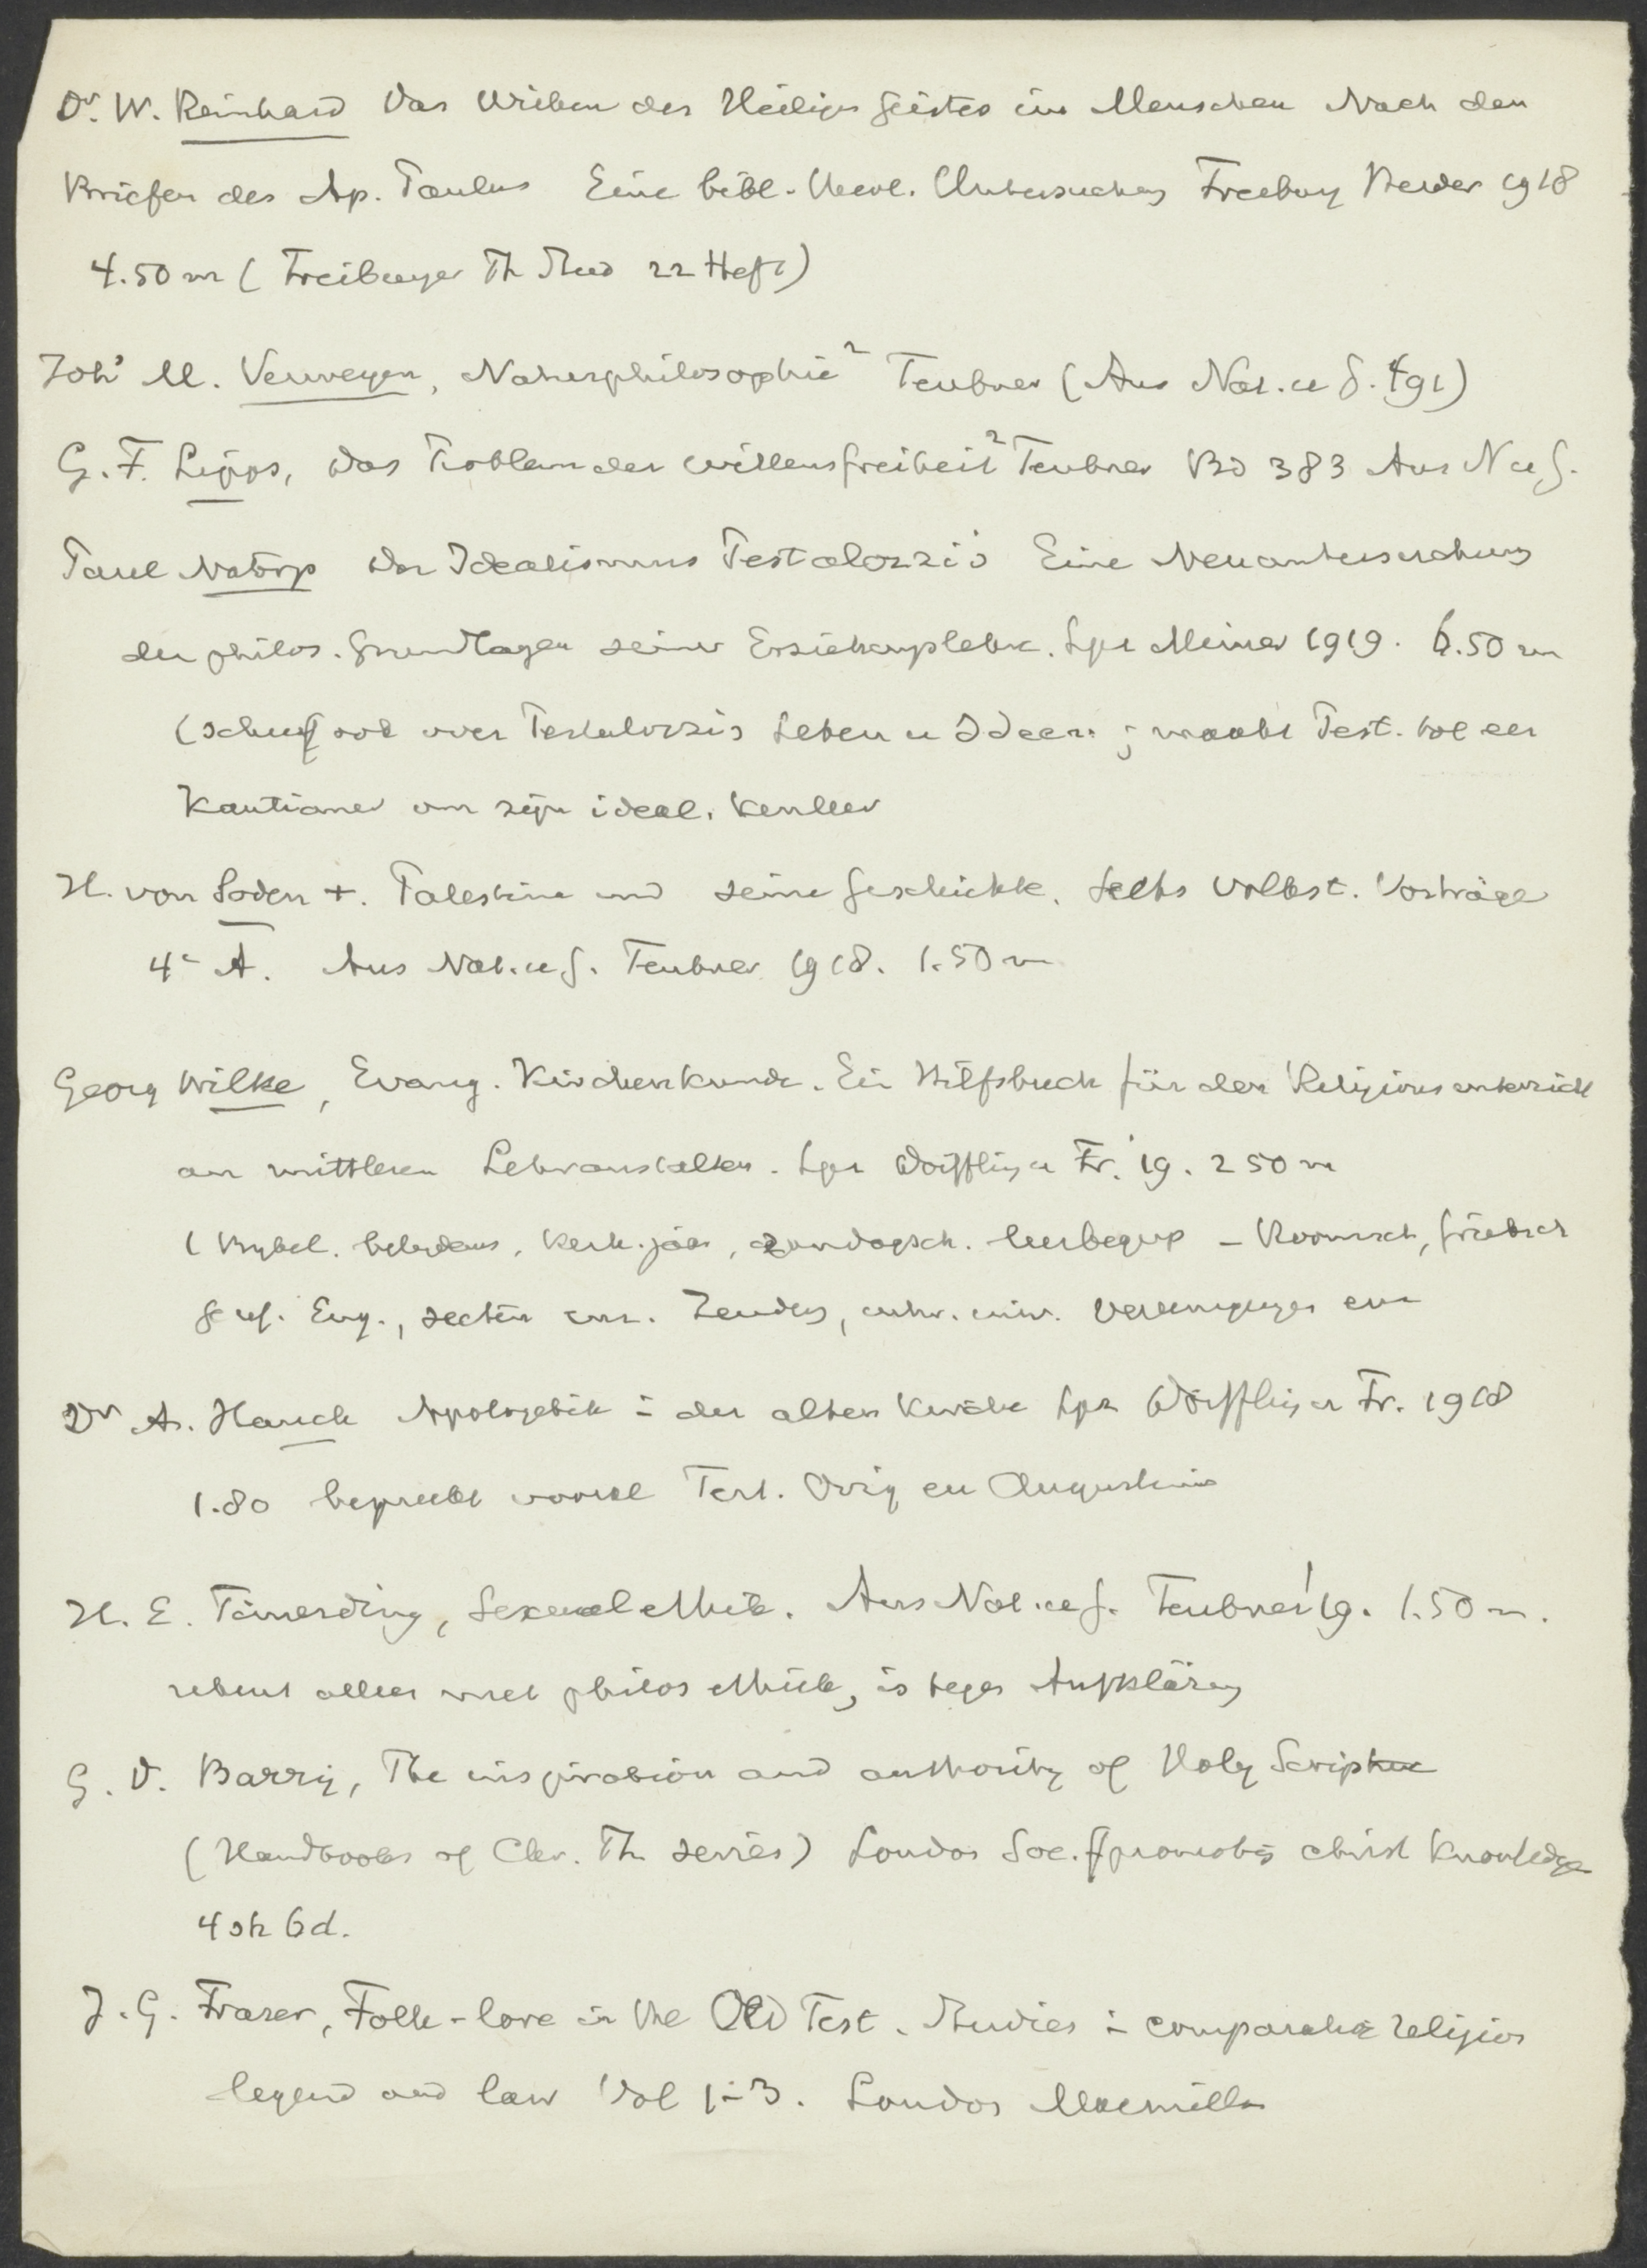 Dr. W. Reinhard Das Wirken des Heiligen Geistes im Menschen Nach den
Briefen des Ap. Paulus Eine bibl.-theol. Untersuchung Freiburg Herder 1918
4.50 m (Freiburger Th Stud 22 Heft)
Joh's M. Verweyen, Naturphilosophie² Teubner (Aus Nat. u G. 491)
G. F. Lipps, Das Problem der Willensfreiheit² Teubner Bd 383 Aus N u G.
Paul Natorp Der Idealismus Pestalozzis Eine Neuuntersuchung
der philos. Grundlagen seiner Erziehungslehre. Lpz Meiner 1919. 6.50 m
(schreef ook over Pestalozzis Leben u Ideen; maakt Pest. tot een
Kantianer om zijn ideal. kenleer
H. von Soden +. Palestina und seine Geschichte. Sechs volkst. Vorträge
4e A. Aus Nat. u G. Teubner 1918. 1.50 m
Georg Wilke, Evang. Kirchenkunde. Ein Hilfsbuch für den Religionsunterricht
an mittleren Lehranstalten. Lpz Dörffling u Fr. '19. 2 50 m
(Bybel. kerk. jaar, zondagsch. leerbegrip - Roomsch, Grieksch
Geref. Eng., secten enz. Zending, inw. vereenigingen enz
Dr A. Hauck Apologetik in der alten Kirche Lpz Dörffling u Fr. 1918
1.80 bespreekt vooral Tert. Orig en Augustinus
H. E. Timerding, Sexualethik. Aus Nat. u G. Teubner '19. 1.50 m.
rekent alleen met philos ethiek, is tegen Aufklärung
G. D. Barry, The inspiration and authority of Holy Scripture
(Handbooks of Chr. Th series) London Soc. f promoting christ knowledge
4 sh 6d.
J. G. Frazer, Folk-lore in the Old Test. Studies in comparative religion
legend and law Vol 1-3. London Macmillan